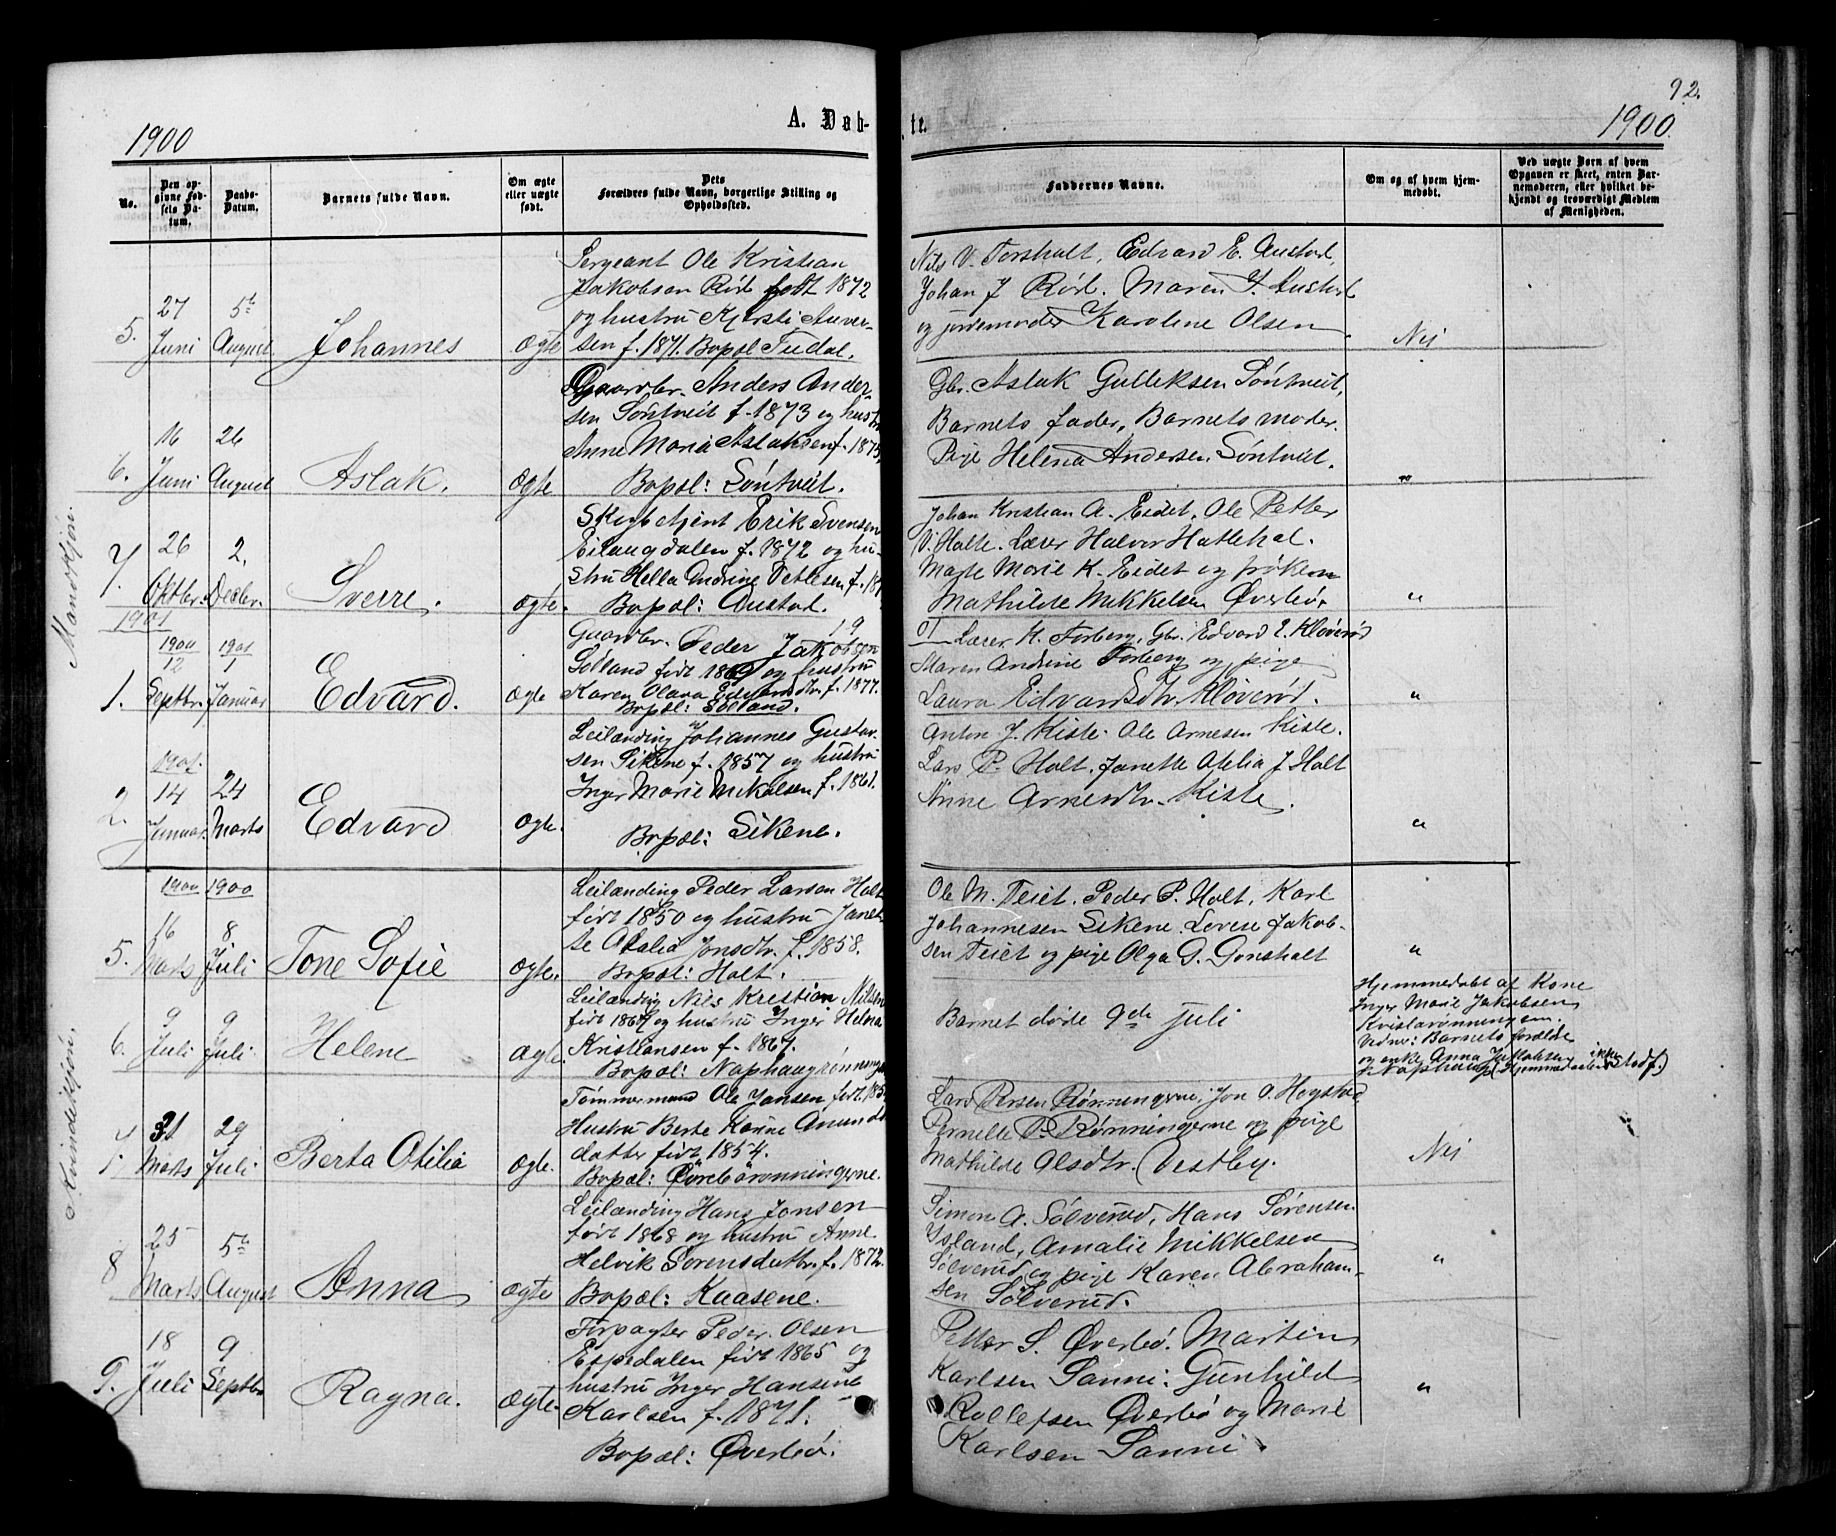 92.
1900
A. Døb-
te.
1900.
No.
Den op-
givne Fød-
sels Da-
tum.
Daabs-
Datum.
Barnets fulde Navn.
Om ægte
eller uægte
født.
Dets
Forældres fulde Navn, borgerlige Stilling og
Opholdssted.
Faddernes Navne.
Om og af hvem hjem-
medøbt.
Ved uægte Børn af hvem
Opgaven er skeet, enten Bar-
nemoderen, eller hvilket be-
kjendt og troværdigt Medlem
af Menigheden.
Mandkjøn.
5.
27
Juni
5te
August
Johannes
Ægte
Sergeant Ole Kristian
Jakobsen Rød født 1872
og hustru Kjersti Anver-
sen f. 1871. Bopæl Tudal.
Nils V. Torshult, Edvard E. Austad,
Johan J Rød. Maren S. Austad
og jordemoder Karoline Olsen
Nei
6.
16
Juni
26
August
Aslak.
Ægte
Gaardbr. Anders Ander-
sen Søntveit f. 1873 og hustru
Anne Maria Aslaksen f. 1873,
Bopæl: Søntveit.
Gbr. Aslak Gulleksen Søntveit,
Barnets fader, Barnets moder.
Pige Helena Andersen Søntveit.
"
7.
26
Oktbr.
2.
Decbr.
Sverre.
ægte.
Skogbetjent Erik Svensen
Eilaugdalen f. 1872 og hu-
stru Hella Andrine Petlesen f. 187
Bopæl: Austad.
Johan Kristian A. Eidet, Ole Petter
V. Holte. Lærer Halvor Hattehol.
Magte Marie K. Eidet og frøken
Mathilde Mikkelsen Øverbø.
"
1901
1900
1901
1901
1.
12
Septbr.
1
Januar
Edvard.
Ægte
Gaardbr. Peder Jakobsen
Sølland født 1869 og hustru
Karen Olava Edvardsdtr. f. 1877.
Bopæl: Sølland.
Lærer K. Torberg, Gbr. Edvard E. Kløverød
Maren Andrine Torberg og pige
Laura Edvardsdtr. Kløverød.
"
1901.
2.
14
Januar.
24
Marts
Edvard
Ægte.
Leilænding Johannes Gustav-
sen Sikene f. 1857 og hustru
Inger Marie Mikalsen f. 1861.
Bopæl: Sikene.
Anton J. Kiste. Ole Arnesen Kiste.
Lars P. Holt. Janette Otelia J Holt
Anne Arnesdtr. Kiste.
"
Kvindekjøn.
1900
1900
5.
16
Marts
8
Juli
Tone Sofie
Ægte.
Leilænding Peder Larsen Holt
født 1850 og hustru Janet-
te Otalia Jonsdtr. f. 1858.
Bopæl: Holt.
Ole M. Teiet. Peder P. Holt, Karl
Johannesen Sikene. Lovise Jakob-
sen Teiet og pige Olga G. Gonsholt
"
6.
9
Juli
9
Juli.
Helene
Ægte.
Leilænding Nils Kristian Nilsen
født 1867 og hustru Inger Helena
Kristiansen f. 1867.
Bopæl: Naphaugrønningen
Barnet døde 9de juli
Hjemmedøbt af Kone
Inger Marie Jakobsen,
Kvistarønningen.
Vidner: Barnets forældre
og enke Anna Jakobsen
Naphaug (Hjemmedaaben ikke stadf.)
7.
31
Marts
29
Juli
Berta Otilia
Ægte.
Tømmermand Ole Jansen født 185
Hustru Berte Karine Amunds
datter født 1854.
Bopæl: Øvrebørønningerne.
Lars Persen Rønningerne, Jon O. Hogstad
Pernelle P. Rønningerne og pige
Mathilde Olsdtr. Vestby.
Nei
8
25
Marts
5te
August
Anna
Ægte
Leilænding Hans Jonsen
født 1868 og hustru Anne
Helvik Sorensdatter, f. 1872.
Bopæl: Kaasene.
Simon A. Sølverud, Hans Sørensen
Island, Amalie Mikkelsen
Sølverud og pige Karen Abraham-
sen Sølverud.
"
9.
18
Juli
9
Septbr.
Ragna.
Ægte.
Forpagter Peder Olsen
Espedalen født 1865 og
hustru Inger Hansine
Karlsen f. 1871.
Bopæl: Øverbø.
Petter S. Øverbø. Martin
Karlsen Sanni. Gunhild
Rollefsen Øverbø og Marie
Karlsen Sanni.
"